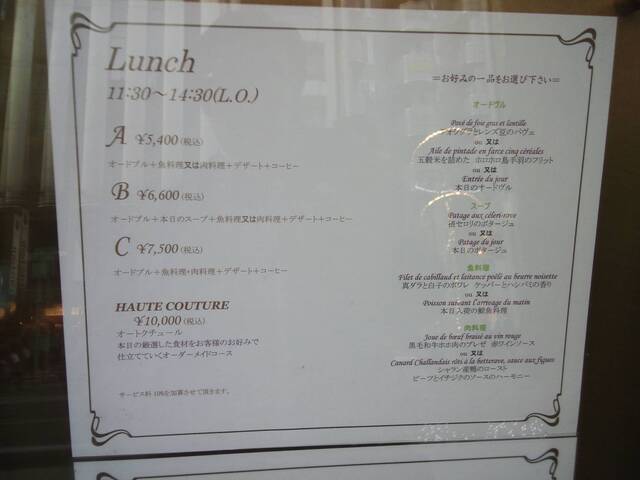 Lunch
11:30～14:30(L.O.)
A ¥5,400(税込)
オードブル＋魚料理又は肉料理＋デザート＋コーヒー
B ¥6,600(税込)
オードブル＋本日のスープ＋魚料理又は肉料理＋デザート＋コーヒー
C ¥7,500(税込)
オードブル＋魚料理+肉料理＋デザート＋コーヒー
HAUTE COUTURE
¥10,000(税込)
オートクチュール
本日の厳選した食材をお客様のお好みで
仕立てていくオーダーメイドコース
サービス料10%を加算させて頂きます。
＝お好みの一品をお選び下さい＝
オードヴル
Pavé de foie gras et lentille
フォアグラとレンズ豆のパヴェ
ou 又は
Aile de pintade en farce cinq céréales
五穀米を詰めた ホロホロ鳥手羽のフリット
ou 又は
Entrée du jour
本日のオードヴル
スープ
Patage aux céleri-rave
根セロリのポタージュ
ou 又は
Patage du jour
本日のポタージュ
魚料理
Filet de cabillaud et laitance poêlé au beurre noisette
真ダラと白子のポワレ ケッパーとハシバミの香り
ou 又は
Poisson suivant l'arrivage du matin
本日入荷の鮮魚料理
肉料理
Joue de bœuf braisé au vin rouge
黒毛和牛ホホ肉のブレゼ 赤ワインソース
ou 又は
Canard Challandais rôti à la betterave, sauce aux figues
シャラン産鴨のロースト
ビーツとイチジクのソースのハーモニー